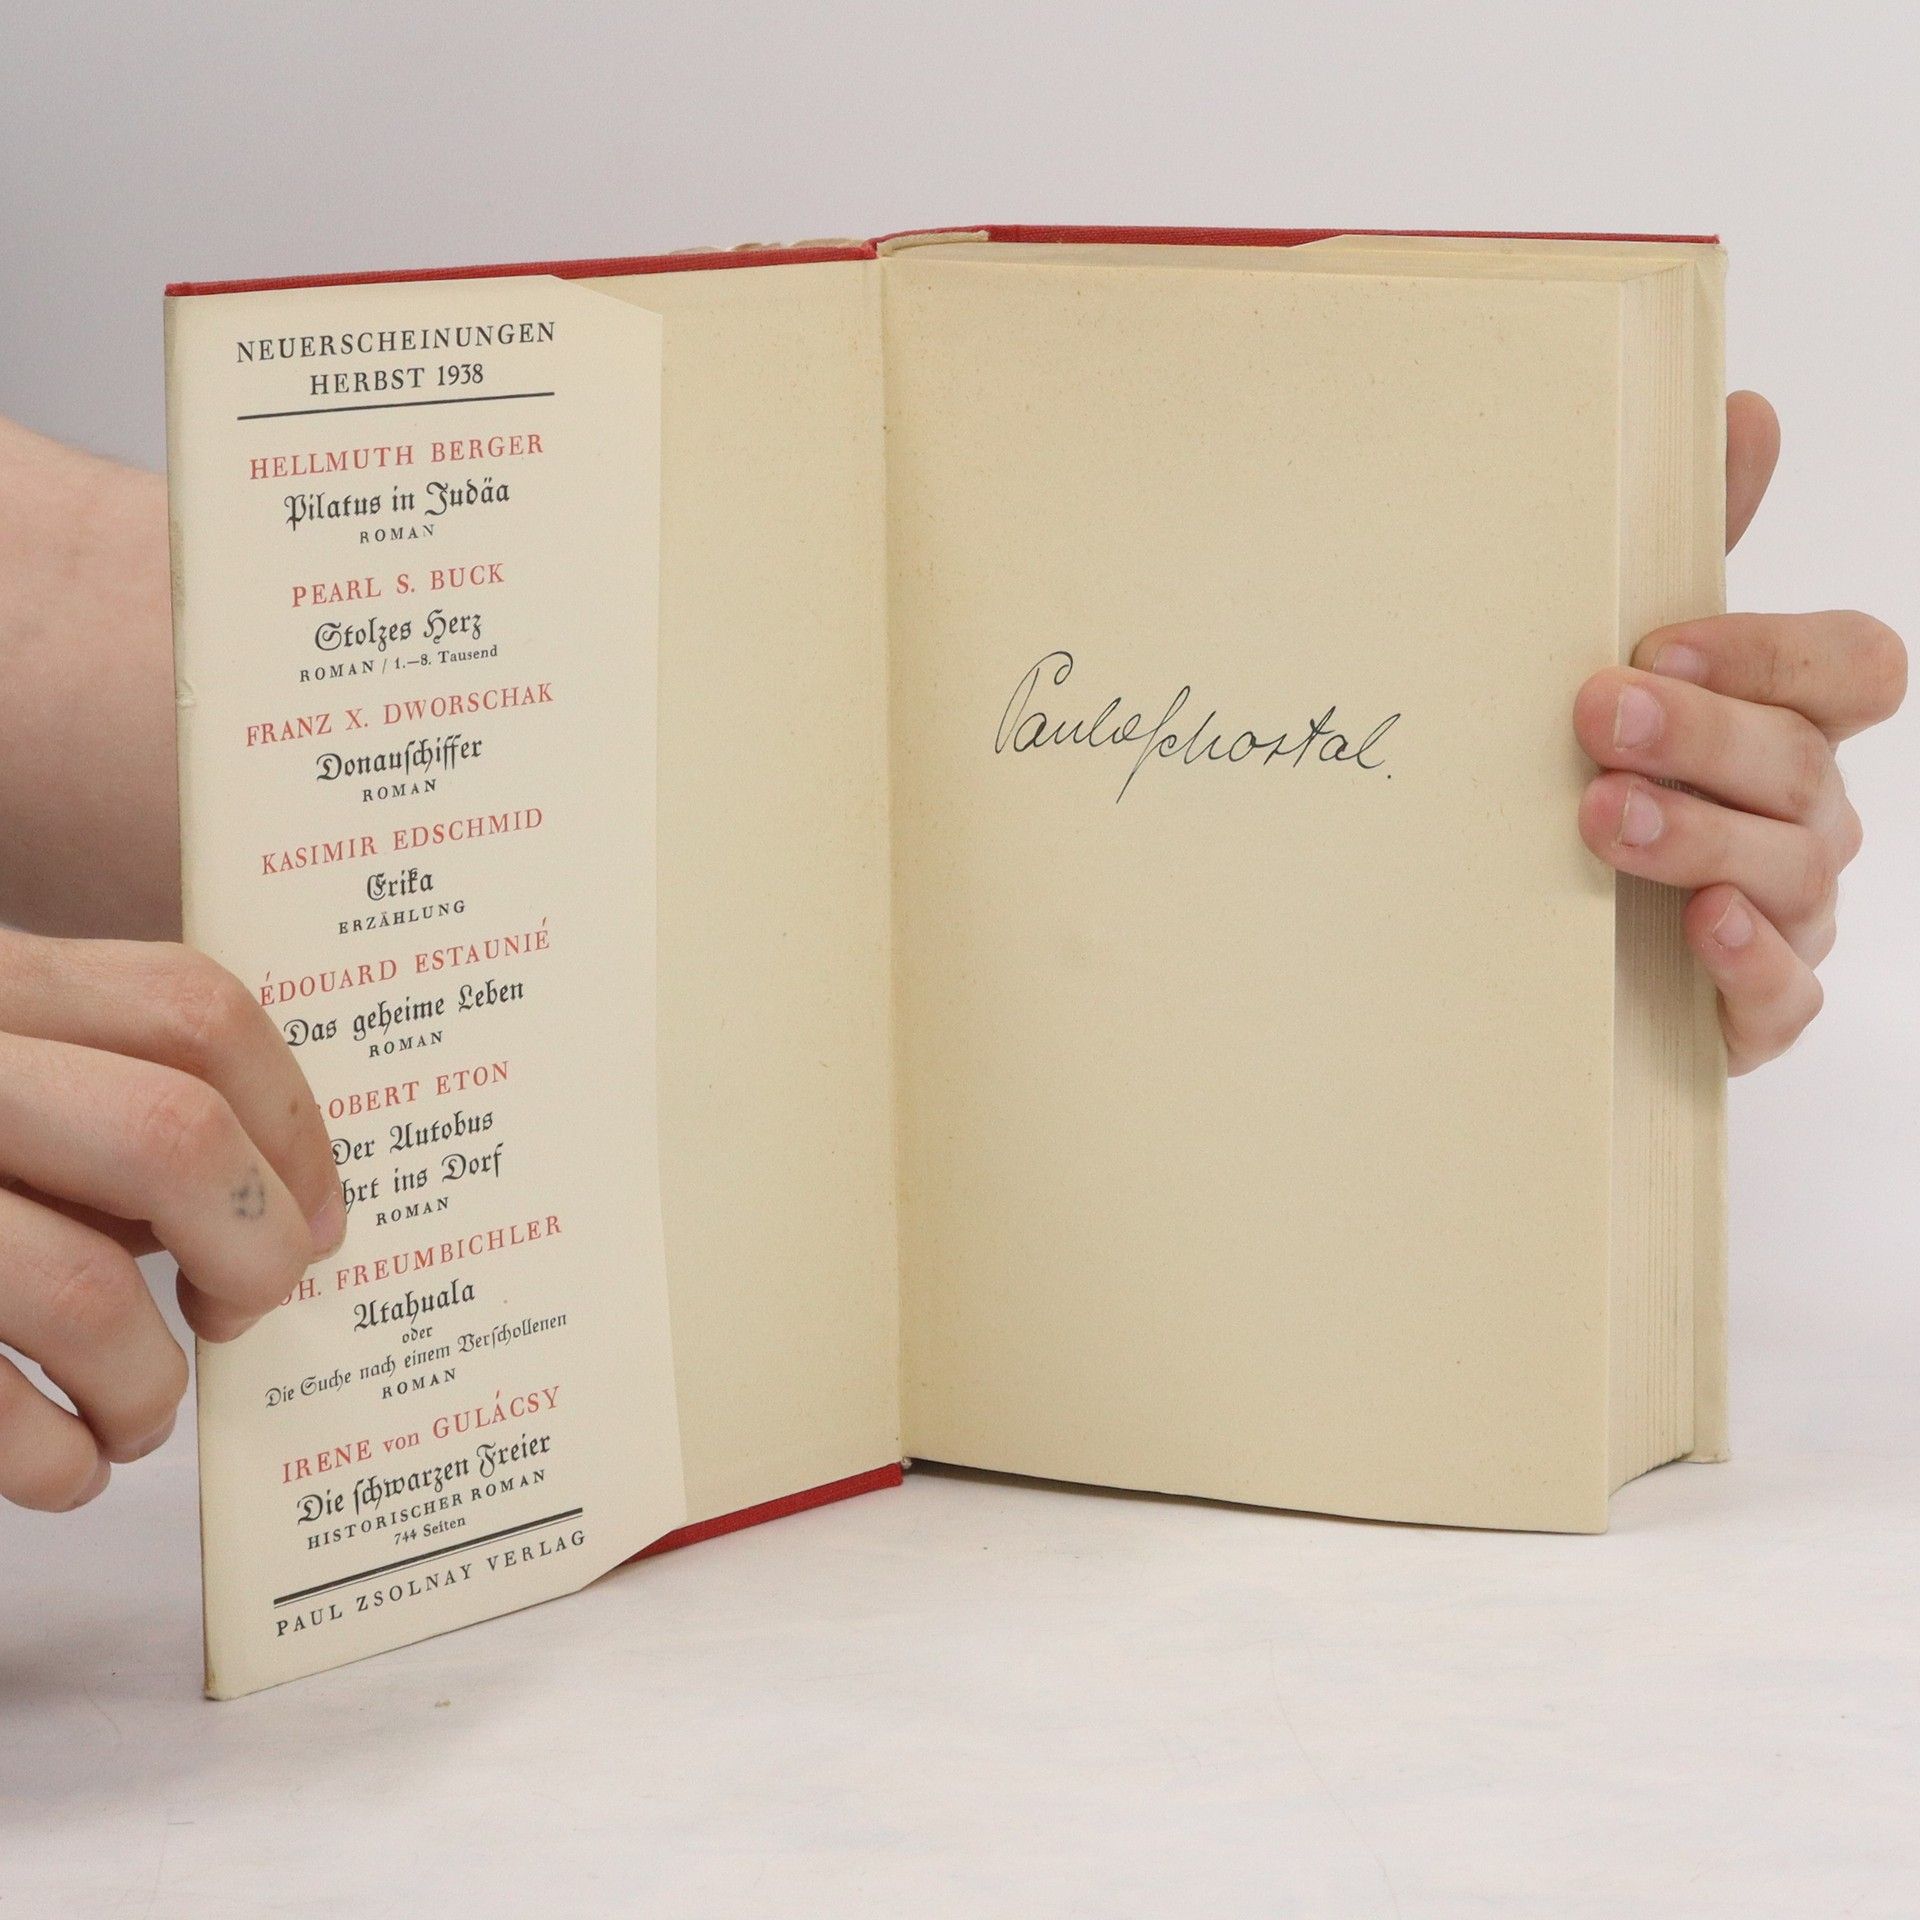 NEUERSCHEINUNGEN
HERBST 1938
HELLMUTH BERGER
Pilatus in Judäa
ROMAN
PEARL S. BUCK
Stolzes Herz
ROMAN / 1.–8. Tausend
FRANZ X. DWORSCHAK
Donauſchiffer
ROMAN
KASIMIR EDSCHMID
Erika
ERZÄHLUNG
ÉDOUARD ESTAUNIÉ
Das geheime Leben
ROMAN
OBERT ETON
Der Autobus
hrt ins Dorf
ROMAN
OH. FREUMBICHLER
Atahuala
oder
Die Suche nach einem Verſchollenen
ROMAN
IRENE von GULÁCSY
Die ſchwarzen Freier
HISTORISCHER ROMAN
744 Seiten
PAUL ZSOLNAY VERLAG
Paulaſchostal.